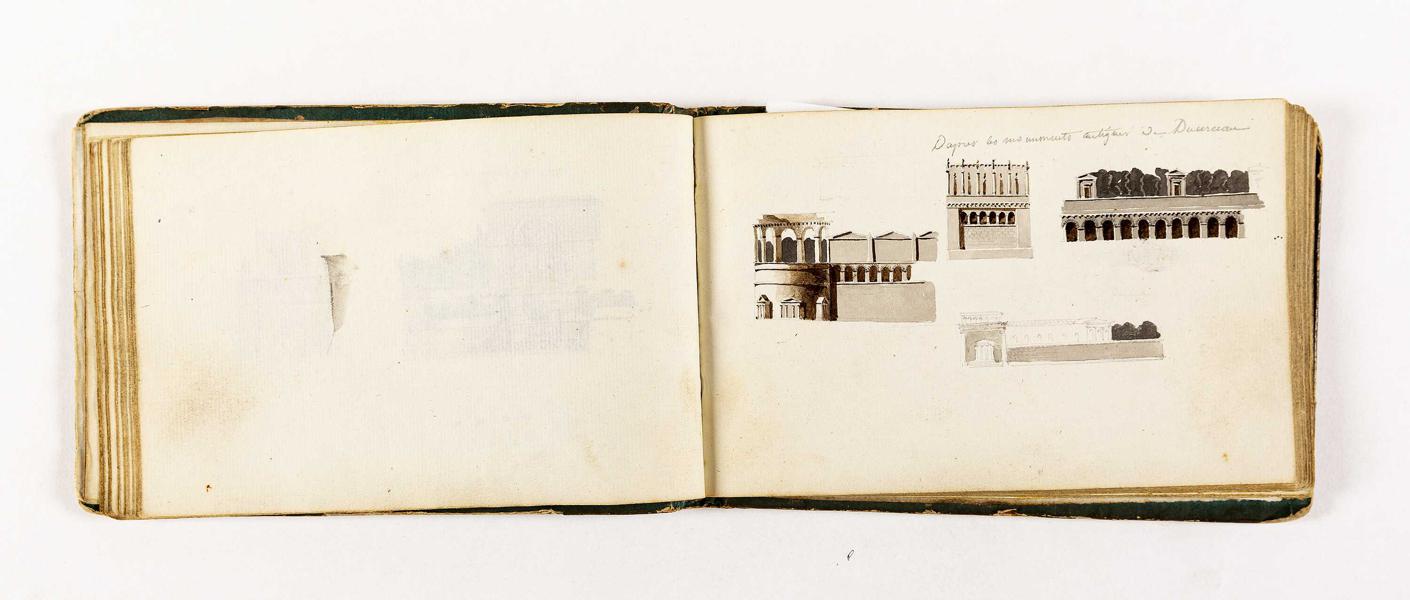 Dapres les monuments antiques de Ducerceau